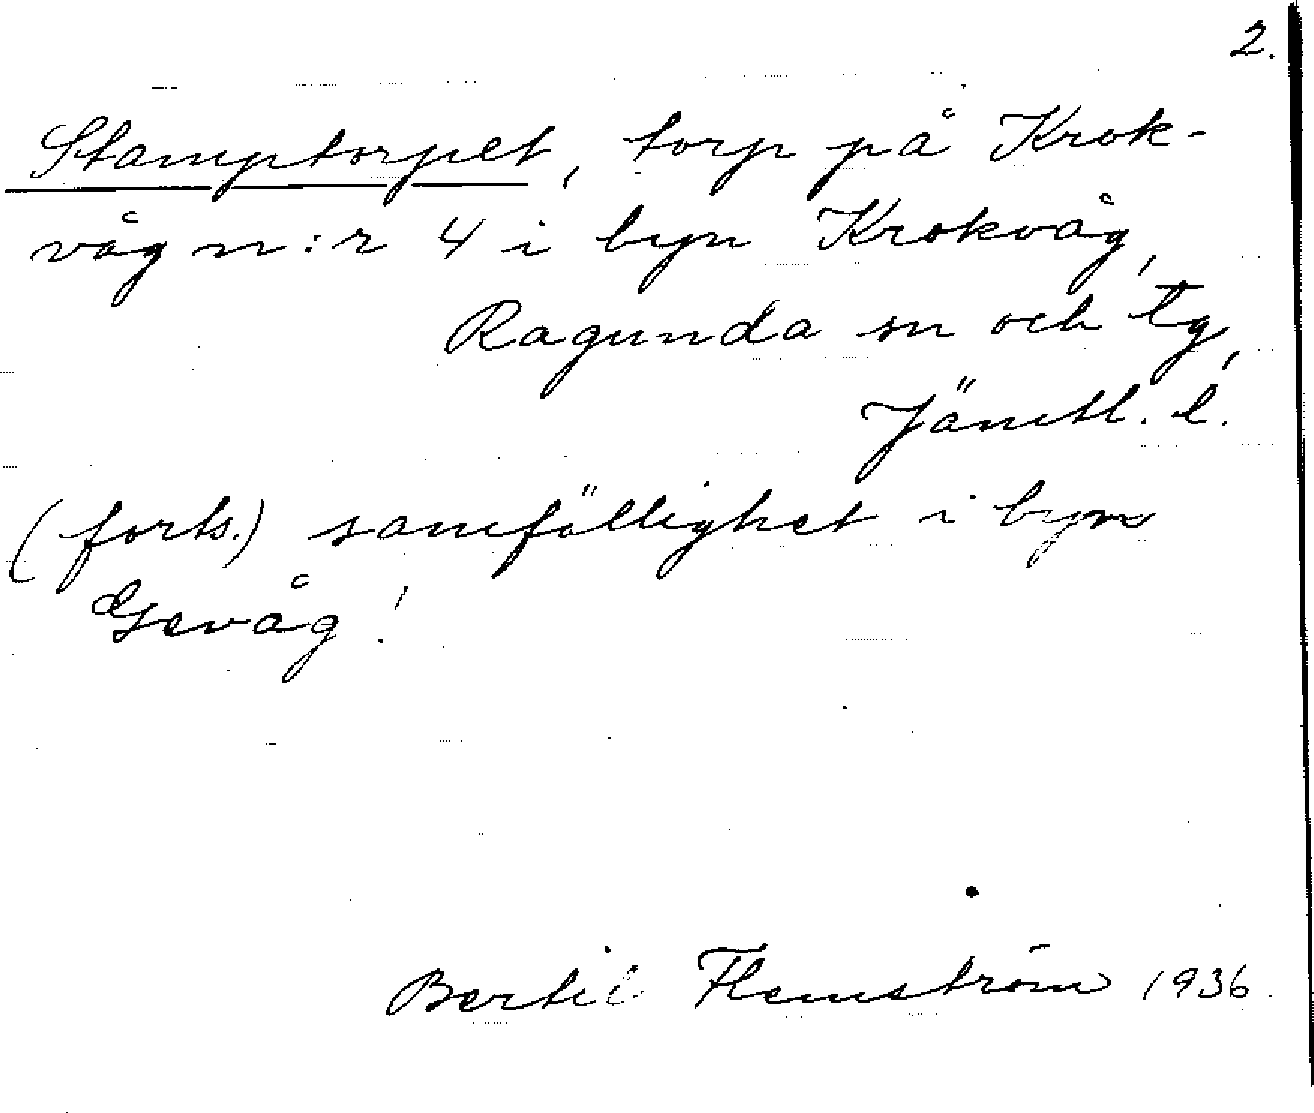 2.
Stamptorpet, torp på Krok-
våg n:r 4 i byn Krokvåg,
Ragunda sn och tg,
Jämtl. l.
(forts.) samfällighet i byn
Gevåg!
Bertil Flemström 1936.